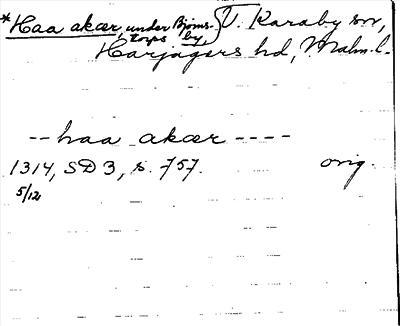 *Haa akær, under Bjärns- } V. Karaby sn,
torps by,
Harjagers hd, Malm. l.
-- haa akær ----
1314, SD 3, s. 757. orig.
5/12